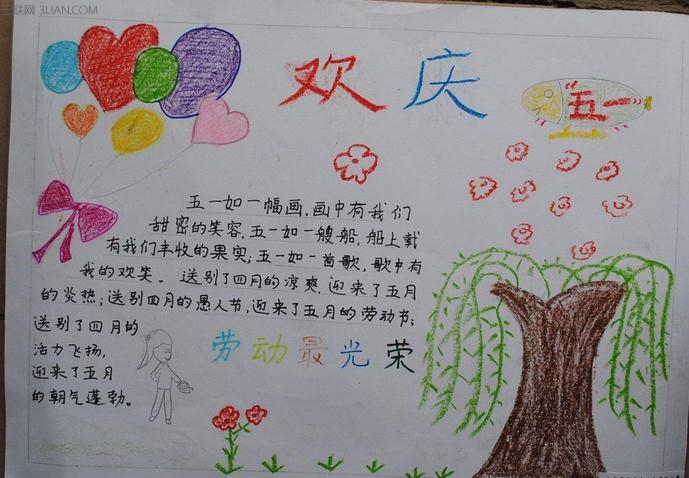 联网 3LIAN.COM
欢庆
"五一"
五一如一幅画,画中有我们
甜密的笑容;五一如一艘船,船上载
有我们丰收的果实;五一如一首歌,歌中有
我的欢笑。送别了四月的凉爽,迎来了五月
的炎热;送别四月的愚人节,迎来了五月的劳动节;
送别了四月的
活力飞扬,
迎来了五月
的朝气蓬勃。
劳动最光荣